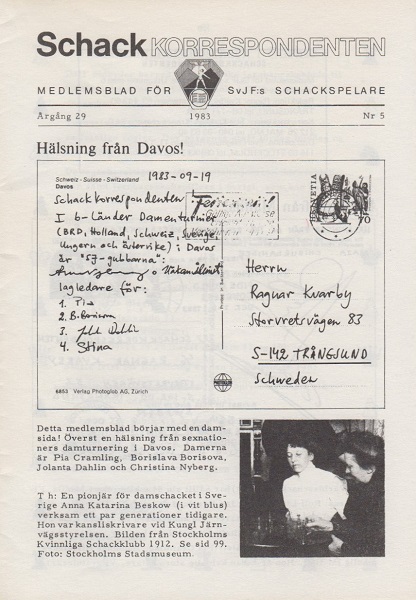 Schack KORRESPONDENTEN
MEDLEMSBLAD FÖR SvJF:s SCHACKSPELARE
Årgång 29 1983 Nr 5
Hälsning från Davos!
Schweiz - Suisse - Switzerland
Davos
1983-09-19
Schackkorrespondenten
I 6-Länder Damenturnier
(BRD, Holland, Schweiz, Sverige,
Ungern och Österrike) i Davos
är "SJ-gubbarna":
lagledare för:
1. Pia
2. B. Borisova
3. Dahlin
4. Stina
HELVETIA
70
Herrn
Ragnar Kvarby
Storvretsvägen 83
S-142 TRÅNGSUND
Schweden
6853 Verlag Photoglob AG, Zürich
Detta medlemsblad börjar med en dam-
sida! Överst en hälsning från sexnatio-
ners damturnering i Davos. Damerna
är Pia Cramling, Borislava Borisova,
Jolanta Dahlin och Christina Nyberg.
T h: En pionjär för damschacket i Sve-
rige Anna Katarina Beskow (i vit blus)
verksam ett par generationer tidigare.
Hon var kansliskrivare vid Kungl Järn-
vägsstyrelsen. Bilden från Stockholms
Kvinnliga Schackklubb 1912. Se sid 99.
Foto: Stockholms Stadsmuseum.